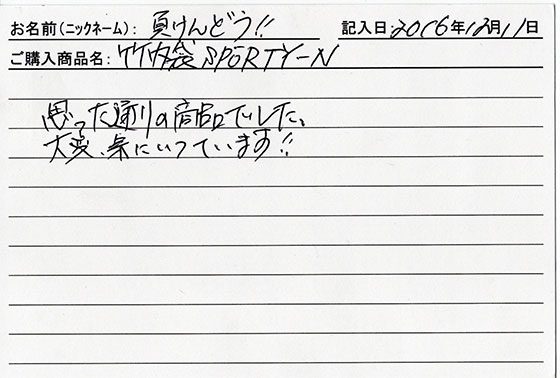 お名前(ニックネーム): 負けんどう!! 記入日: 2016年12月11日
ご購入商品名: 竹刀袋SPORTY-N
思った通りの商品でした。
大変、気にいっています!!